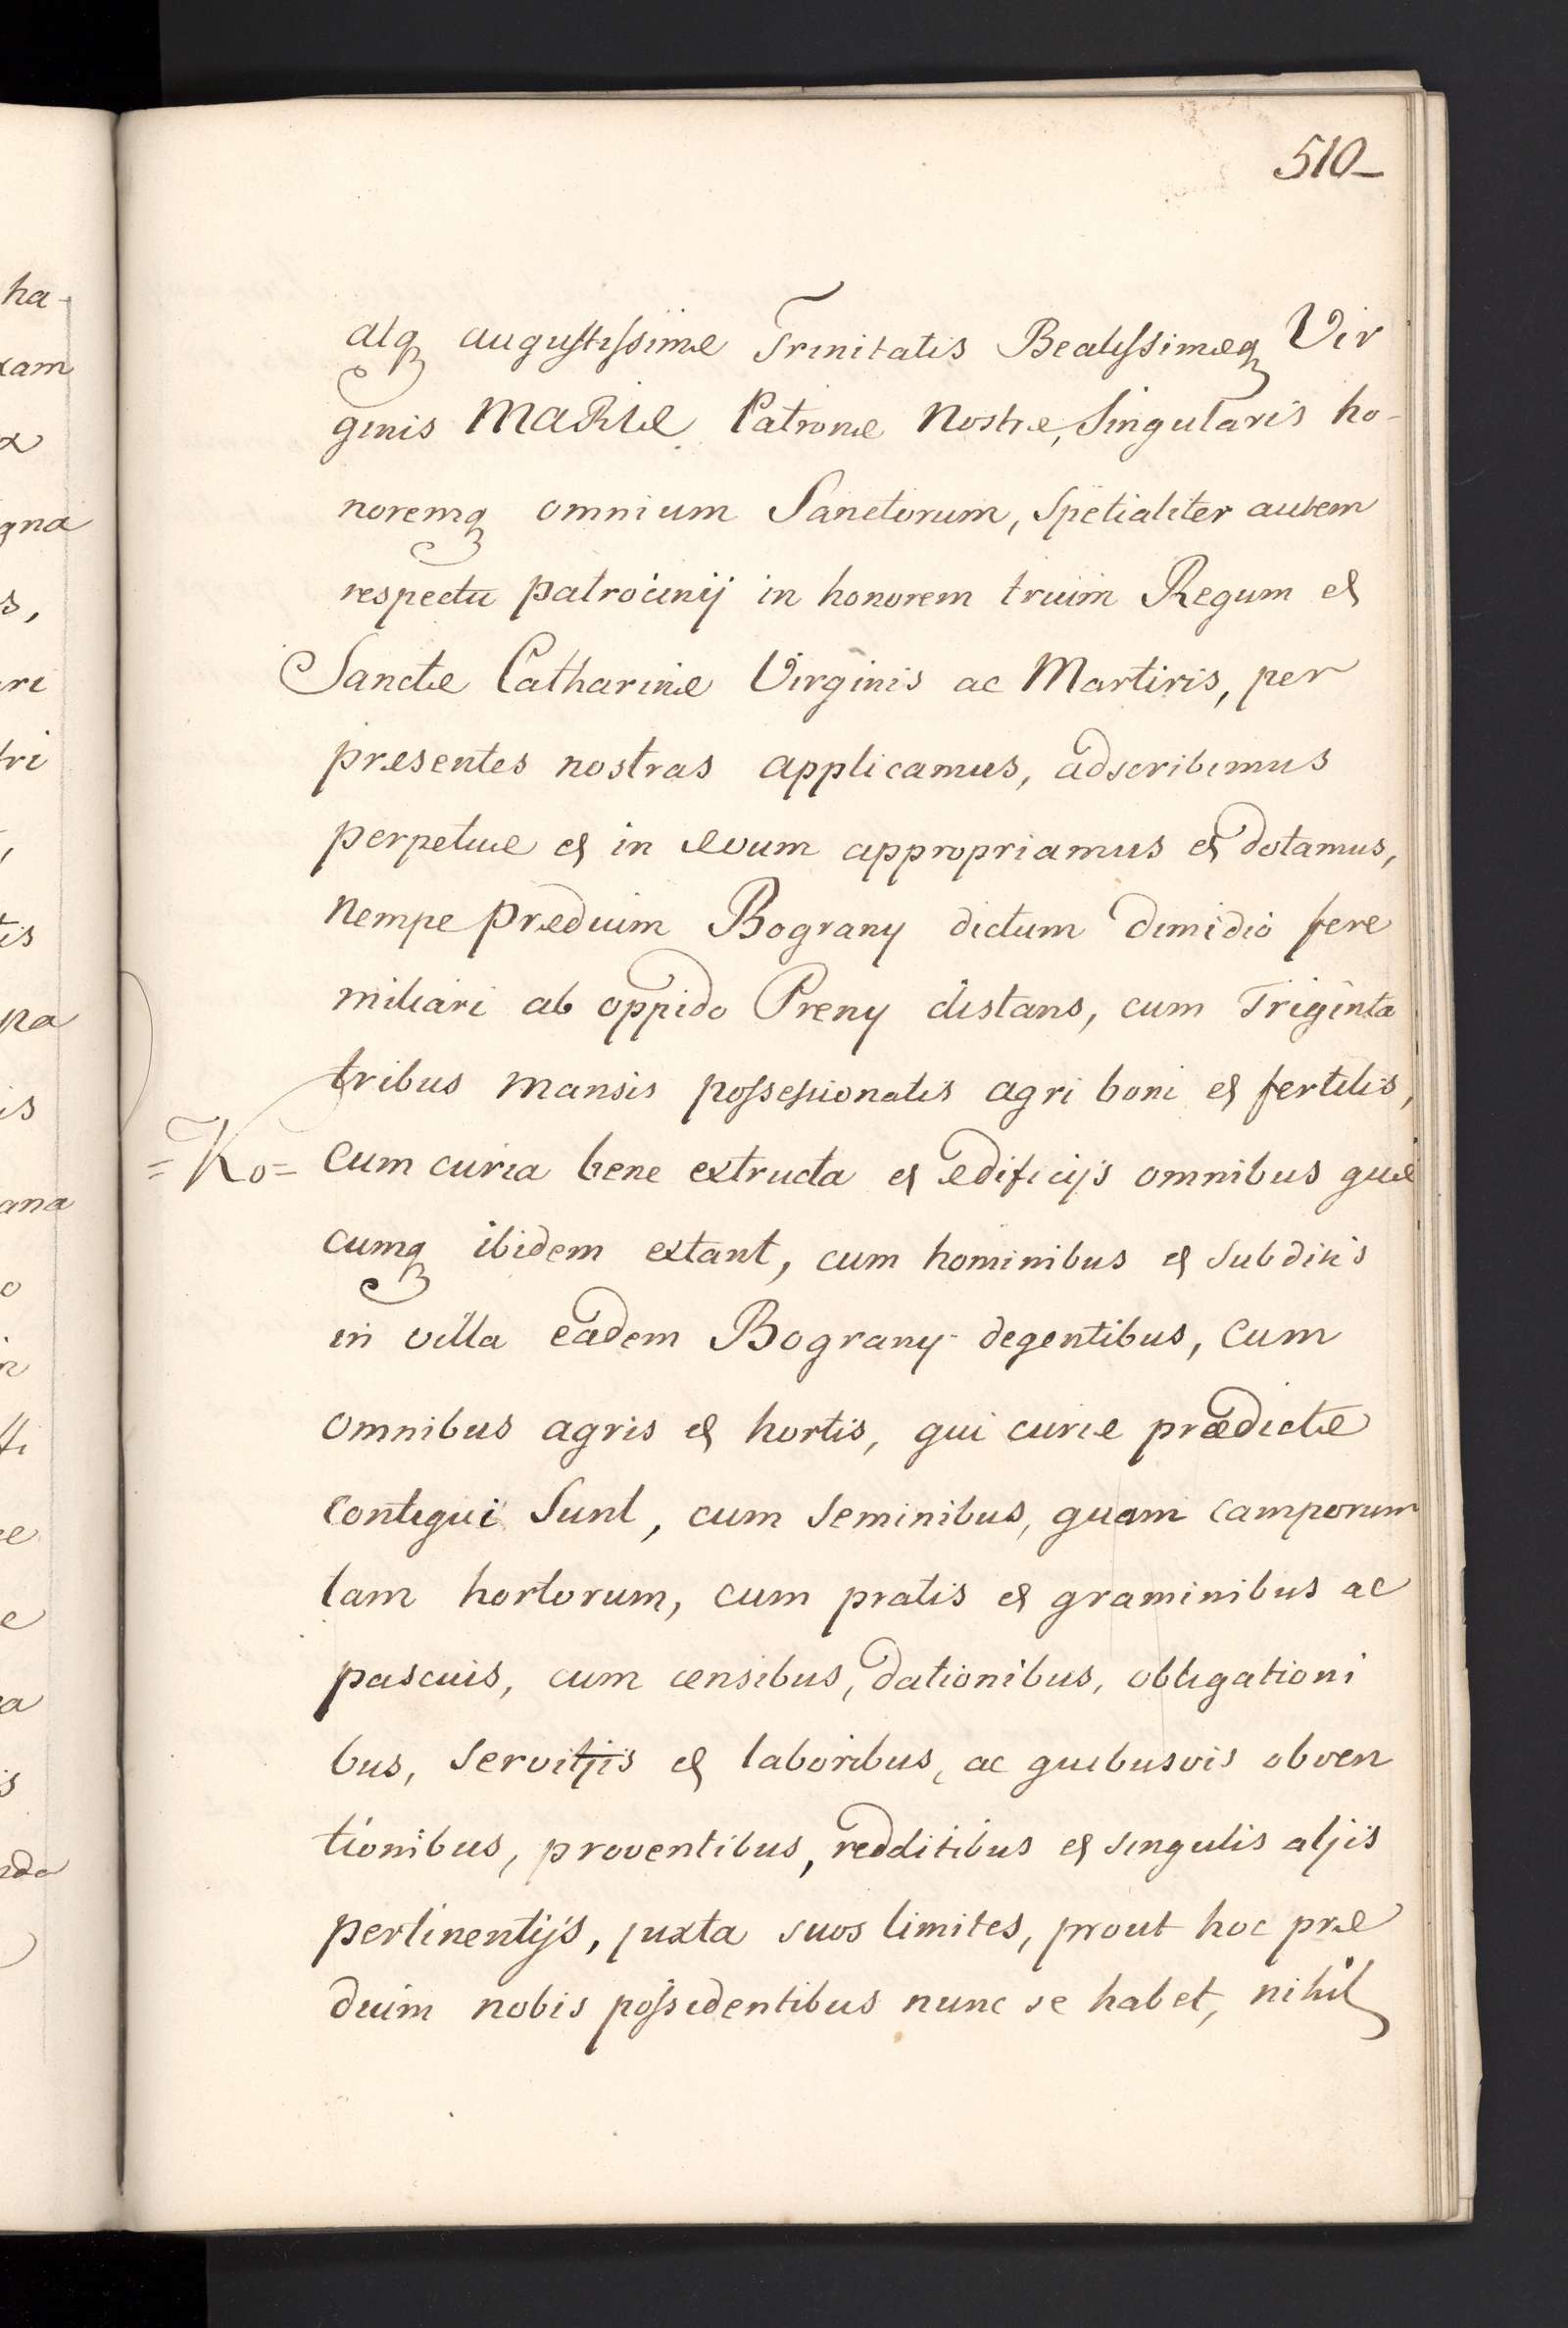 510
atq augustissimæ Trinitatis Beatissimæq Vir
ginis MaRiæ Patronæ Nostræ, Singularis ho-
noremq omnium Sanctorum, spetialiter autem
respectu patrocinij in honorem trium Regum et
Sanctæ Catharinæ Virginis ac Martiris, per
præsentes nostras applicamus, adscribimus
perpetuæ et in ævum appropriamus et dotamus,
nempe prædium Bograny dictum dimidio fere
miliari ab oppido Preny distans, cum Triginta
tribus mansis possessionatis agri boni et fertilis,
=Ko= cum curia bene extructa et ædificijs omnibus quæ
cumq ibidem extant, cum hominibus et subditis
in villa eadem Bograny degentibus, cum
omnibus agris et hortis, qui curiæ prædictæ
contigui sunt, cum seminibus, quam camporum
tam hortorum, cum pratis et graminibus ac
pascuis, cum censibus, dationibus, obligationi
bus, servitjis et laboribus, ac quibusvis obven
tionibus, proventibus, redditibus et singulis aljis
pertinentijs, juxta suos limites, prout hoc præ
dium nobis possidentibus nunc se habet, nihil